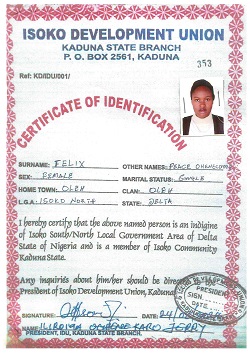 ISOKO DEVELOPMENT UNION
KADUNA STATE BRANCH
P. O. BOX 2561, KADUNA
353
Ref: KD/IDU/001/
CERTIFICATE OF IDENTIFICATION
SURNAME: FELIX OTHER NAMES: PEACE
SEX: FEMALE MARITAL STATUS: SINGLE
HOME TOWN: OLEH CLAN: OLEH
L.G.A: ISOKO NORTH STATE: DELTA
I hereby certify that the above named person is an indigine
of Isoko South/North Local Government Area of Delta
State of Nigeria and is a member of Isoko Community
Kaduna State.
Any inquiries about him/her should be directed to
President of Isoko Development Union, Kaduna
PRESIDENT
SIGN
DATE
SIGNATURE: DATE: 24/
NAME: JERRY
PRESIDENT, IDU, KADUNA STATE BRANCH.